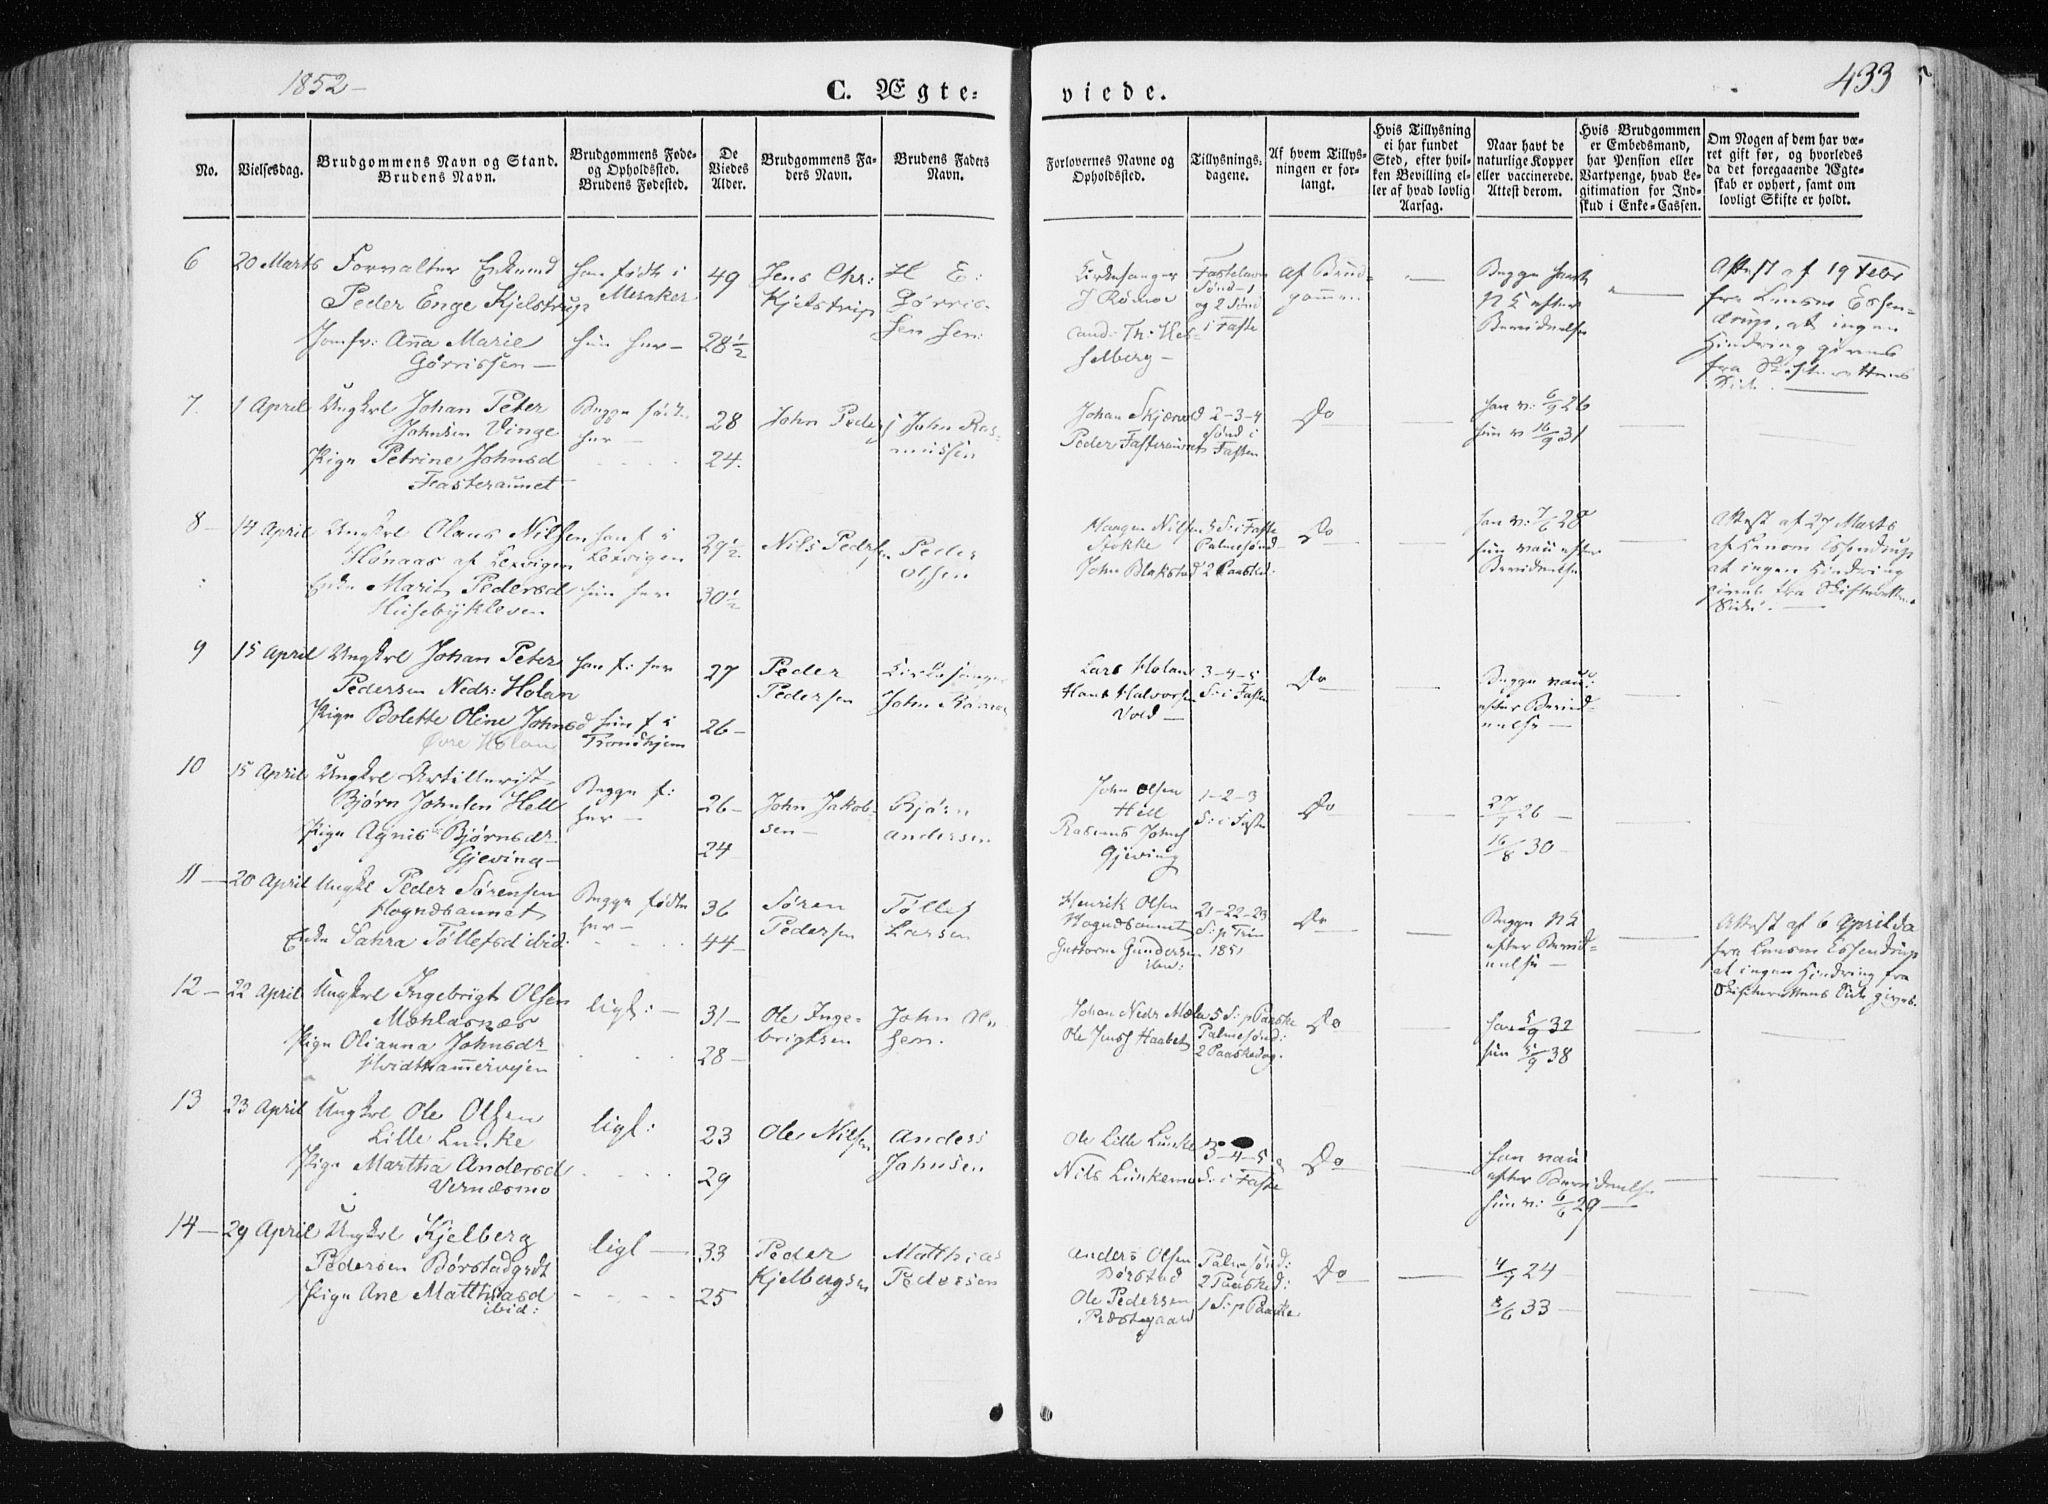 1852 –
C. Ægte- viede.
433
No.
Vielsesdag.
Brudgommens Navn og Stand.
Brudens Navn.
Brudgommens Føde-
og Opholdssted.
Brudens Fødested.
De
Viedes
Alder.
Brudgommens Fa-
ders Navn.
Brudens Faders
Navn.
Forlovernes Navne og
Opholdssted.
Tillysnings-
dagene.
Af hvem Tillys-
ningen er for-
langt.
Hvis Tillysning
ei har fundet
Sted, efter hvil-
ken Bevilling el-
ler af hvad lovlig
Aarsag.
Naar havt de
naturlige Kopper
eller vaccinerede.
Attest derom.
Hvis Brudgommen
er Embedsmand,
har Pension eller
Vartpenge, hvad Le-
gitimation for Ind-
skud i Enke-Cassen.
Om Nogen af dem har væ-
ret gift før, og hvorledes
da det foregaaende Ægte-
skab er ophørt, samt om
lovligt Skifte er holdt.
6
20 Marts
Forvalter Enkemd
Peder Enge Kjelstrup
Jomfr: Anna Marie
Gørrissen –
han født i
Meraker
hun her –
49
28½
Jens Chr:
Kjelstrup
H E:
Gørris-
sen
Kirkesanger
J Rømo
cand: Th: Hes-
selberg –
Fastelavn
Sønd – 1
og 2 Sønd
i Faste
af Brud-
gommen
Begge havt
N K efter
Beviidnelse
Attest af 19 Febr
fra Lensm Essen-
drup, at ingen
Hindring gives
fra Skifterettens
Side. –
7.
1 April
Ungkrl Johan Peter
Johnsen Vinge
Pige Petrine Johnsd
Fasteraunet
Begge født
her –
28
24.
John Peders
John Ras-
mussen
Johan Skjærvold
Peder Fasteraunet
2 – 3 – 4
Sønd i
Fasten
Do
han v: 6/9 26
hun v 16/9 31
8 –
14 April
Ungkrl Olaus Nilsen
Hønaas af Lexvigen
Enke Marit Pedersd
Husebykleven
han f i
Lexvigen
hun her
29½
30½
Nils Pedersen
Peder
Olsen
Nilsen
Stokke
John Blakstad
5 S: i Faste
Palmesønd
2 Paasked:
Do
han v: 7/6 28
hun vac efter
Beviidnelse
Attest af 27 Marts
af Lensm Essendrup
at ingen Hindring
gives fra Skifterettens
Side. –
9
15 April
Ungkrl Johan Peter
Pedersen Nedr: Holan
Pige Bolette Oline Johnsd
Øvre Holan
han f: her
hun f i
Trondhjem
27
26 –
Peder
Pedersen
Kirkesanger
John Rømo
Lars Holan
Hans Halvorsen
Vold –
3 – 4 – 5
S: i Fasten
Do
Begge vac:
efter Beviid-
nelse –
10
15 April
Ungkrl Artillerist
Bjørn Johnsen Hell
Pige Agnis Bjørnsdr
Gjeving –
Begge f:
her –
26 –
24
John Jakob-
sen –
Bjørn
Andersen
John Olsen
Hell
Rasmus Johns
Gjeving
1 – 2 – 3
S: i Faste
Do
27/7 26 –
16/8 30 –
11 –
20 April
Ungkl Peder Sørensen
Hognesaunet
Enke Sahra Tøllefsd ibid.
Begge fødte
her –
36
44 –
Søren
Pedersen
Tøllef
Larsen
Henrik Olsen
Hognesaunet
Guttorm Gundersen
ibid:
21 – 22 – 23
S: p Trin
1851
Do
Begge N K
efter Beviid-
nelse –
Attest af 6 April
fra Lensm Essendrup
at ingen Hindring fra
Skifterettens Side gives.
12 –
22 April
Ungkrl Ingebrigt Olsen
Mæhlasnæs
Pige Olianna Johnsdr
Hvidthammervejen
ligl: –
31 –
28 –
Ole Inge-
brigtsen
John Ol-
sen.
Johan Nedr Mæla
Ole Jenss Haabet
5 S: p Paaske
Palmesønd:
2 Paaskedag.
Do
han 5/9 32
hun 5/9 38
13
23 April
Ungkrl Ole Olsen
Lille Lunke
Pige Martha Andersd
Vernæsmo
ligl:
23
29
Ole Nilsen
Anders
Johnsen
Ole Lille Lunke
Nils Lunkemo
3 – 4 – 5
S: i Faste
Do
han vac
efter Beviidnelse
hun v: 6/6 29 –
14 –
29 April
Ungkrl Kjelberg
Pedersen Børstadgrdt
Pige Ane Matthiasd
ibid:
ligl –
33
25
Peder
Kjelbergsen
Matthias
Pedersen
Anders Olsen
Børstad
Ole Pedersen
Prestegaard
Palmesønd:
2 Paasked:
1 S: p Paaske
Do
4/7 24 –
8/6 33 –